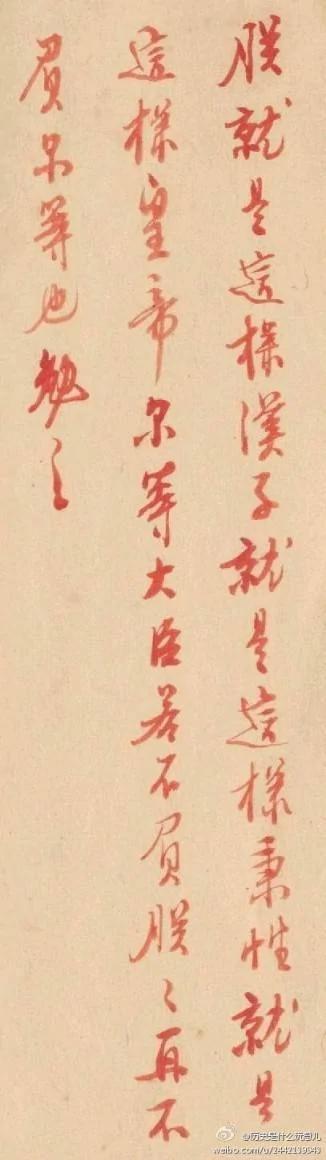 朕就是這樣漢子就是這樣秉性就是
這樣皇帝尔等大臣若不負朕〻再不
負尔等也勉之
@历史是什么玩意儿
weibo.com/u/2442139943